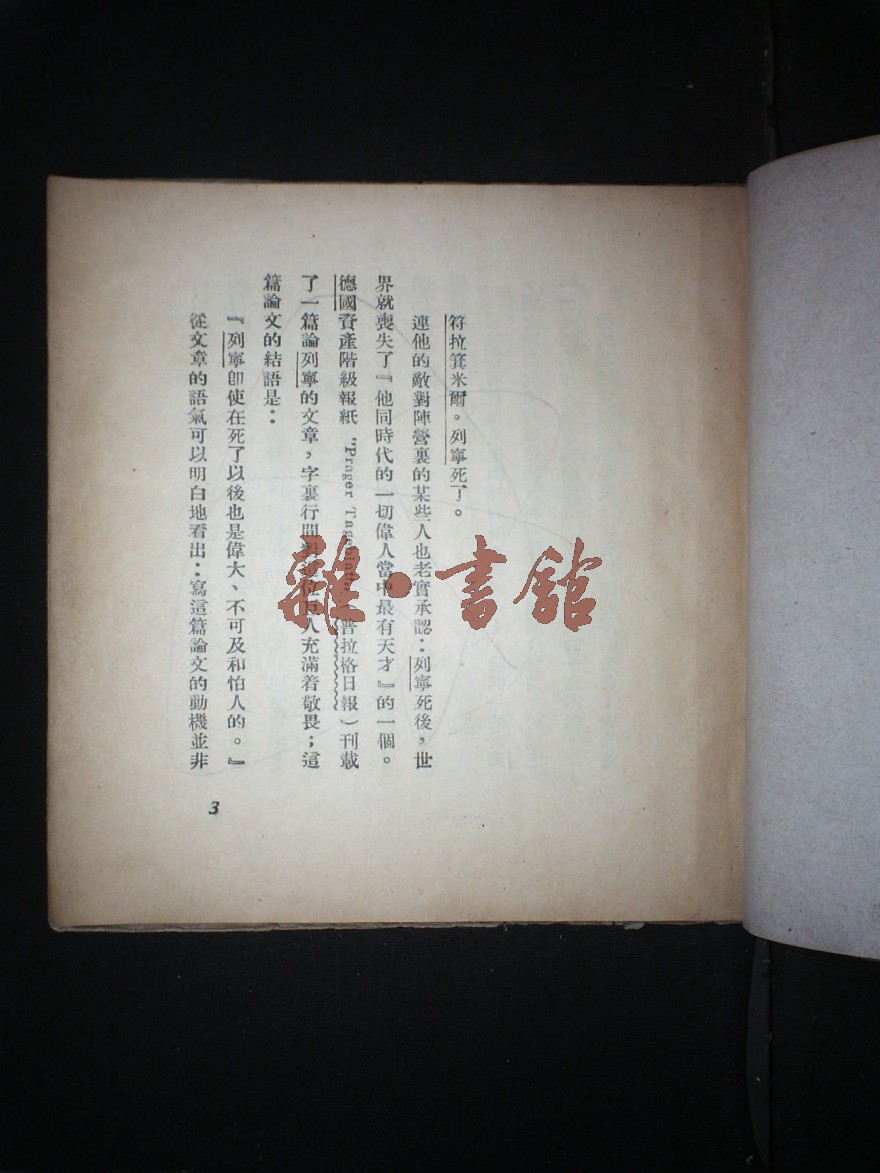 符拉箕米爾。列寧死了。
連他的敵對陣營裏的某些人也老實承認：列寧死後，世
界就喪失了『他同時代的一切偉人當中最有天才』的一個。
德國資產階級報紙 "Prager （普拉格日報）刊載
了一篇論列寧的文章，字裏行間對人充滿着敬畏；這
篇論文的結語是：
『列寧即使在死了以後也是偉大、不可及和怕人的。』
從文章的語氣可以明白地看出：寫這篇論文的動機並非
3
雜·書館